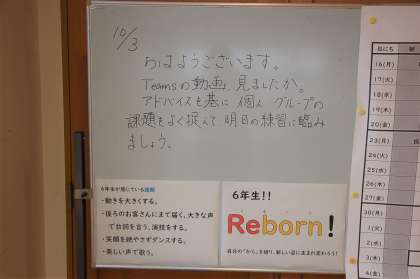 10/3
おはようございます。
Teamsの動画、見ましたか。
アドバイスを基に個人、グループの
課題をよく捉えて明日の練習に臨み
ましょう。
6年生が感じている課題
・動きを大きくする。
・後ろのお客さんにまで届く、大きな声
で台詞を言う、演技をする。
・笑顔を絶やさずダンスする。
・美しい声で歌う。
6年生!!
Reborn!
自分の「から」を破り、新しい姿に生まれ変わろう!
日にち
16(月)
17(火)
18(水)
19(木)
20(金)
23(月)
24(火)
25(水)
26(木)
27(金)
30(月)
1(火)
2(水)
3(木)
4(金)